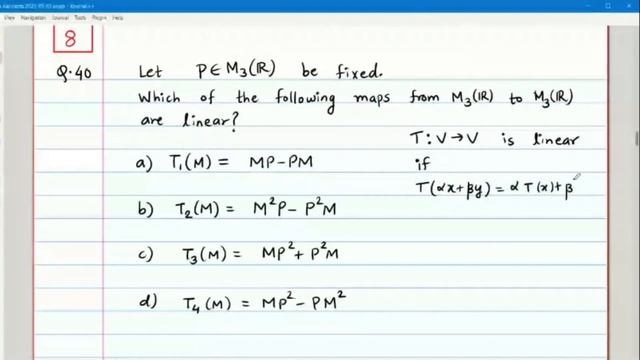 View Navigation Journal Tools Plugin Help
8
Q.40 Let P∈M₃(ℝ) be fixed.
Which of the following maps from M₃(ℝ) to M₃(ℝ)
are linear?
T: V→V is linear
if
T(αx+βy) = αT(x)+β
a) T₁(M) = MP-PM
b) T₂(M) = M²P-P²M
c) T₃(M) = MP²+P²M
d) T₄(M) = MP²-PM²